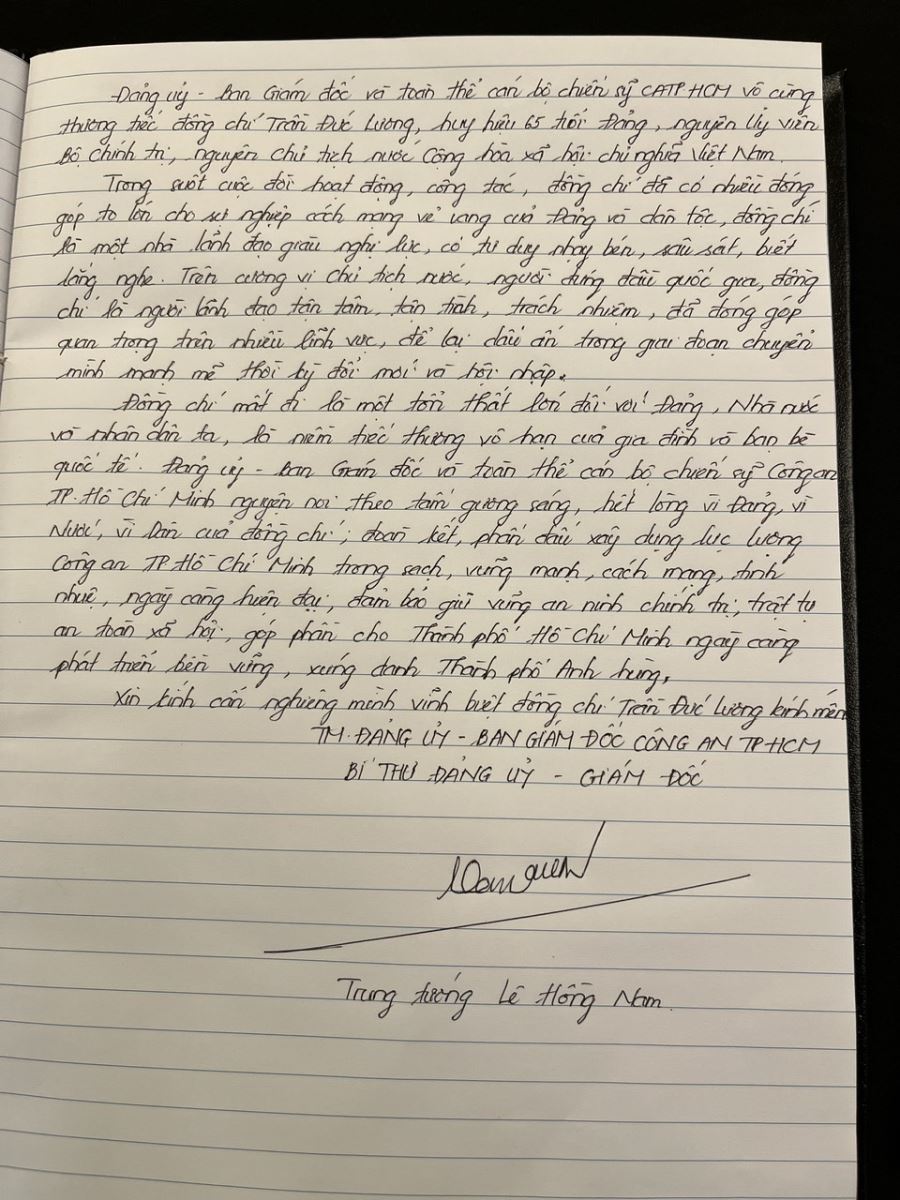 Đảng ủy - Ban Giám đốc và toàn thể cán bộ chiến sỹ CATP HCM vô cùng
thương tiếc đồng chí Trần Đức Lương, huy hiệu 65 tuổi Đảng, nguyên Ủy viên
Bộ chính trị, nguyên chủ tịch nước Cộng hòa xã hội chủ nghĩa Việt Nam.
Trong suốt cuộc đời hoạt động, công tác, đồng chí đã có nhiều đóng
góp to lớn cho sự nghiệp cách mạng vẻ vang của Đảng và dân tộc, đồng chí
là một nhà lãnh đạo giàu nghị lực, có tư duy nhạy bén, sâu sát, biết
lắng nghe. Trên cương vị chủ tịch nước, người đứng đầu quốc gia, đồng
chí là người lãnh đạo tận tâm, tận tình, trách nhiệm, đã đóng góp
quan trọng trên nhiều lĩnh vực, để lại dấu ấn trong giai đoạn chuyển
mình mạnh mẽ thời kỳ đổi mới và hội nhập.
Đồng chí mất đi là một tổn thất lớn đối với Đảng, Nhà nước
và nhân dân ta, là niềm tiếc thương vô hạn của gia đình và bạn bè
quốc tế. Đảng ủy - Ban Giám đốc và toàn thể cán bộ chiến sỹ Công an
TP. Hồ Chí Minh nguyện noi theo tấm gương sáng, hết lòng vì Đảng, vì
Nước, vì Dân của đồng chí; đoàn kết, phấn đấu xây dựng lực lượng
Công an TP Hồ Chí Minh trong sạch, vững mạnh, cách mạng, tinh
nhuệ, ngày càng hiện đại, đảm bảo giữ vững an ninh chính trị, trật tự
an toàn xã hội, góp phần cho Thành phố Hồ Chí Minh ngày càng
phát triển bền vững, xứng danh Thành phố Anh hùng.
Xin kính cẩn nghiêng mình vĩnh biệt đồng chí Trần Đức Lương kính mến
TM. ĐẢNG ỦY - BAN GIÁM ĐỐC CÔNG AN TP HCM
BÍ THƯ ĐẢNG ỦY - GIÁM ĐỐC
Trung tướng Lê Hồng Nam